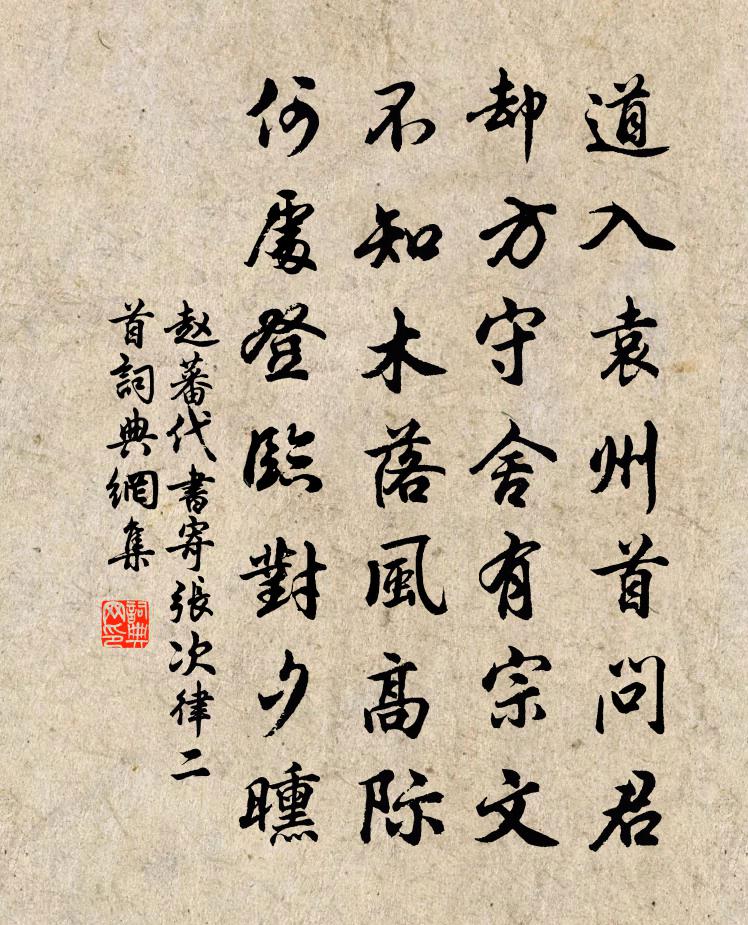 道入袁州首問君
却方守舍有宗文
不知木落風高际
何處登臨對夕曛
赵蕃代書寄張次律二
首詞典網集
詞典
网印